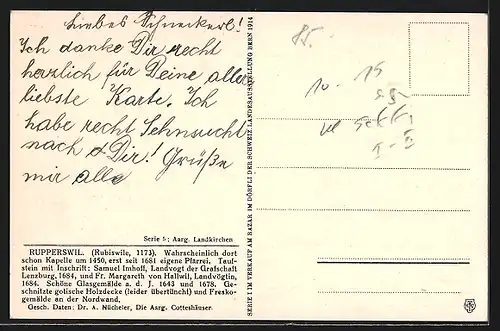 Liebes Schneckerl!
Ich danke Dir recht
herzlich für Deine aller
liebste Karte. Ich
habe recht Sehnsucht
nach Dir! Grüße
mir alle
Serie 5; Aarg. Landkirchen
RUPPERSWIL. (Rubiswile, 1173). Wahrscheinlich dort
schon Kapelle um 1450, erst seit 1681 eigene Pfarrei. Tauf-
stein mit Inschrift: Samuel Imhoff, Landvogt der Grafschaft
Lenzburg, 1684, und Fr. Margareth von Hallwil, Landvögtin,
1684. Schöne Glasgemälde a. d. J. 1643 und 1678. Ge-
schnitzte gotische Holzdecke (leider übertüncht) und Fresko-
gemälde an der Nordwand.
Gesch. Daten: Dr. A. Nücheler, Die Aarg. Gotteshäuser.
SERIE I IM VERKAUF AM BAZAR IM DÖRFLI DER SCHWEIZ. LANDESAUSSTELLUNG BERN 1914
85.
10. 15